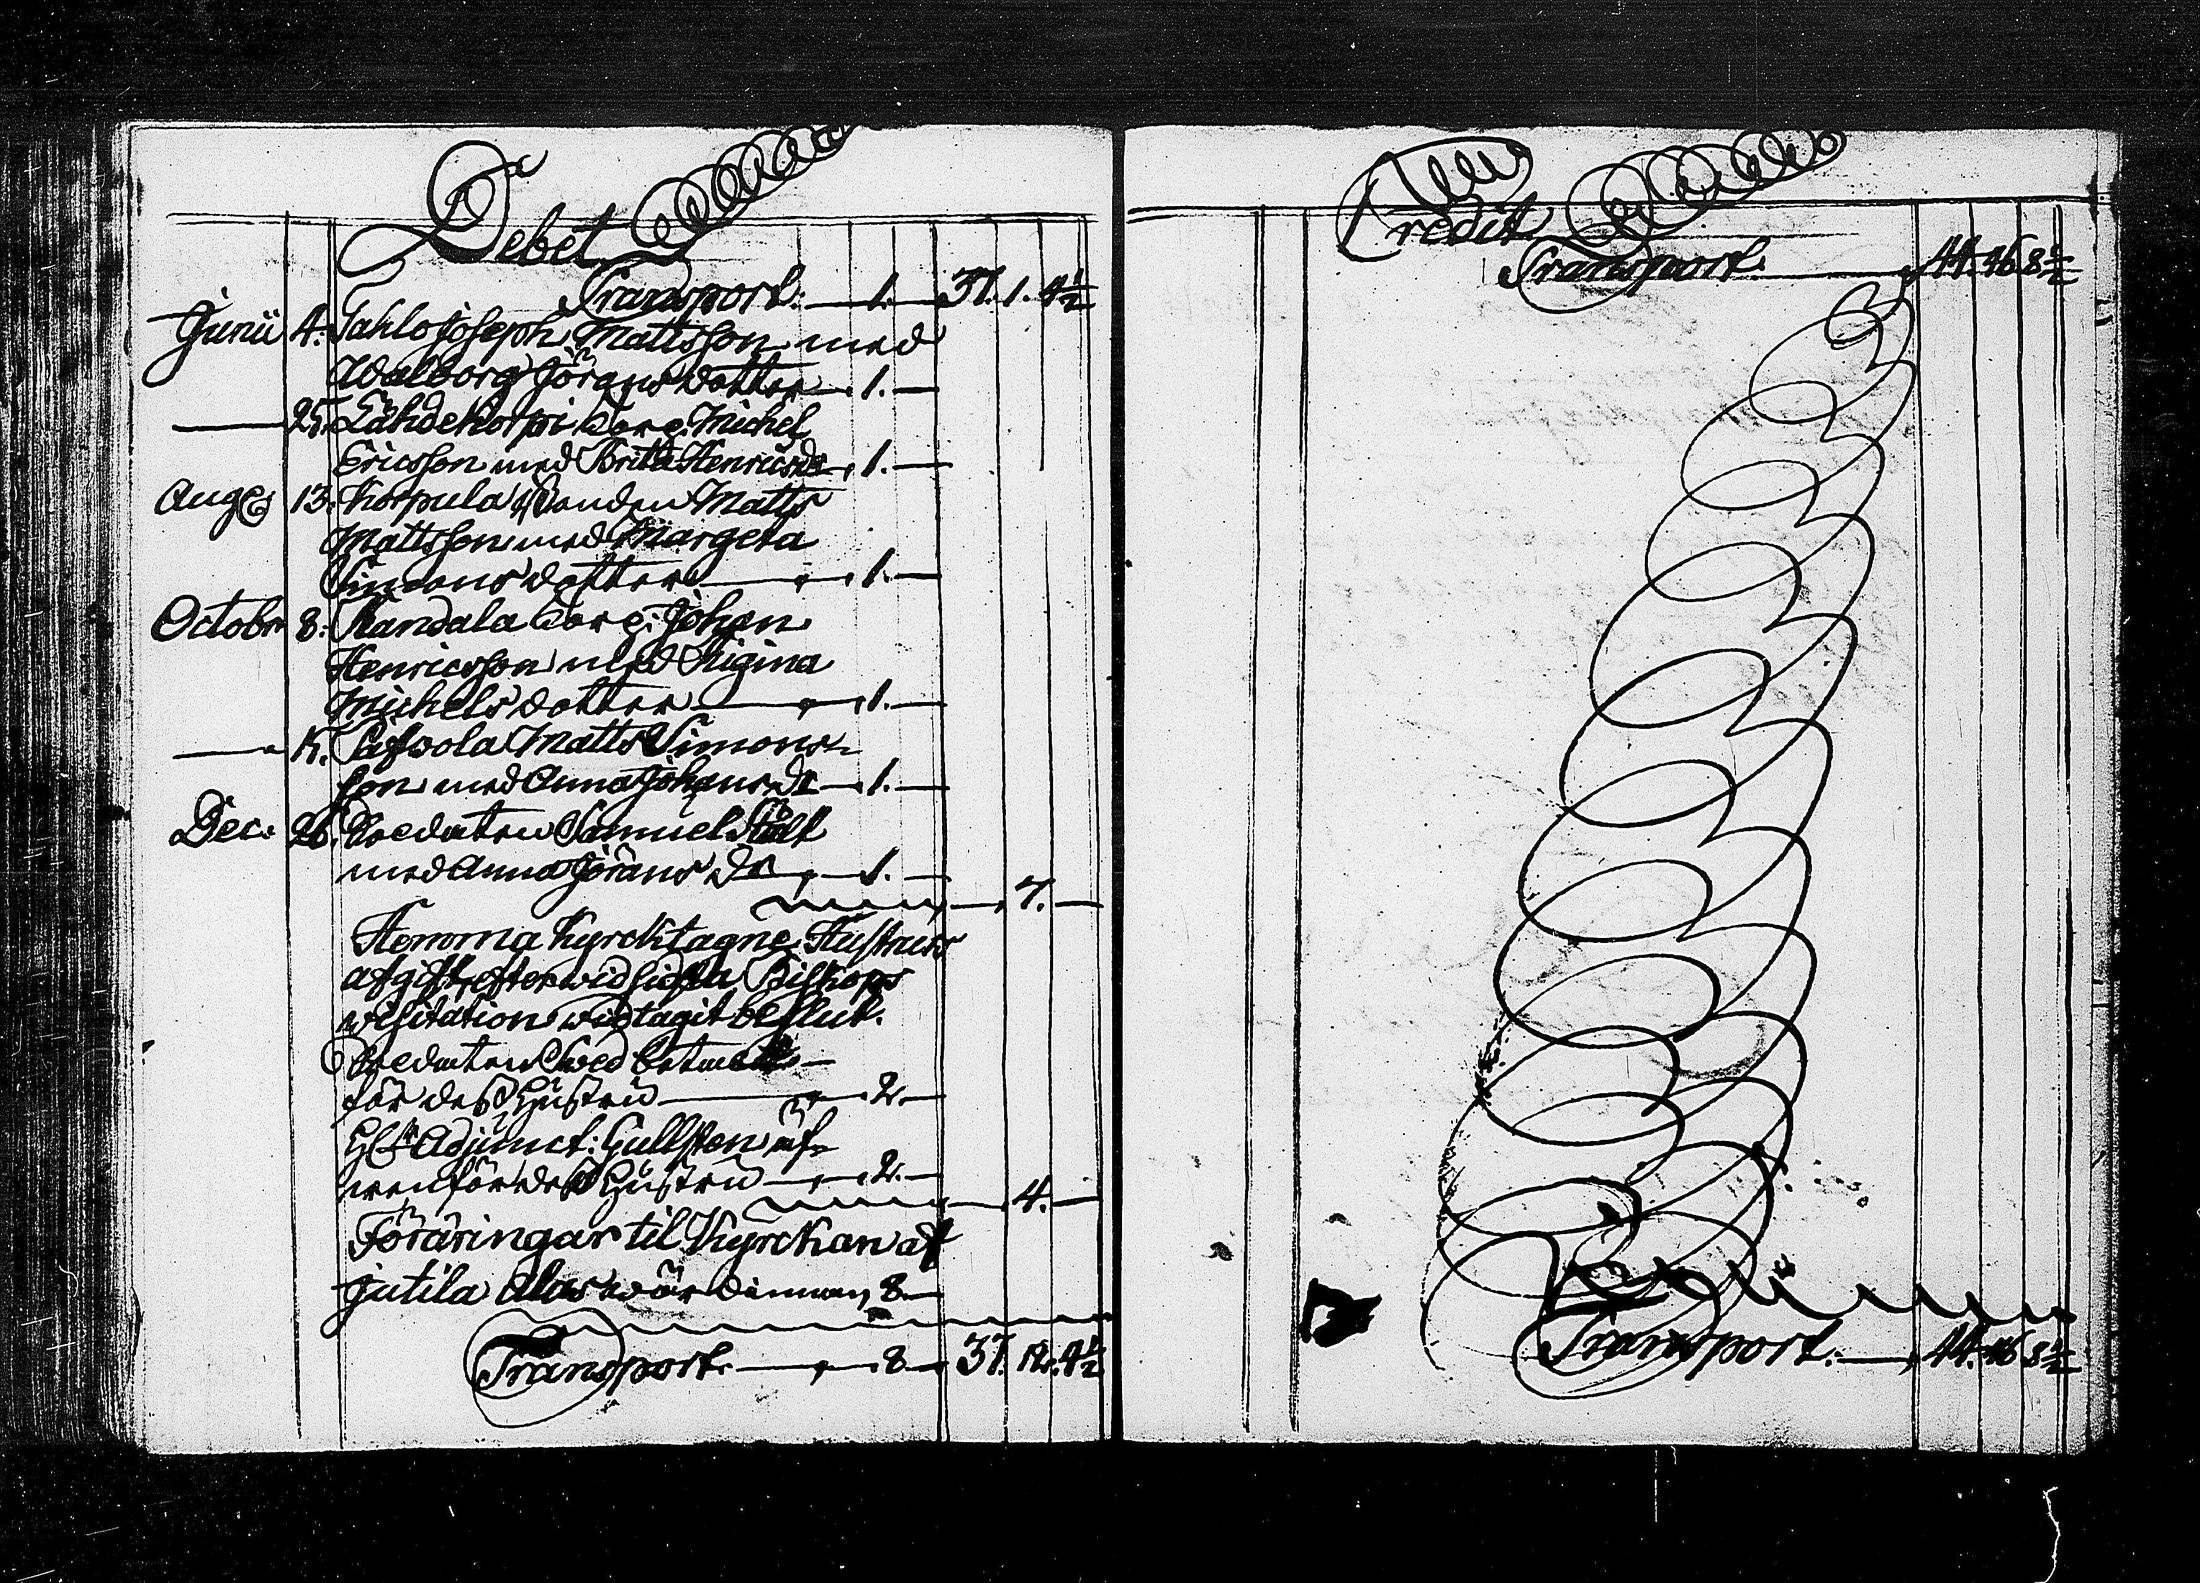 Debet
Transport: 1. 37. 1. 4½
Junii 4. Tahlo Joseph Mattsson med
Walborg Jörans dotter 1.
25. Lähdekorpi Michel
Ericsson med Brita Henrics dr 1.
Aug 13. Korpula Matts
Mattsson med Margeta
Simons dotter 1.
Octobr 8. Randala Johan
Henricsson med Rigina
Michels dotter 1.
Matts Simons-
son med Anna Johans dr 1.
Dec. 26. Soldaten Samuel Stålt
med Anna Jörans dr 1.
7.
Hemma Kyrcktagne Hustrurs
afgift, efter wid sidsta Biskops
visitation widtagit beslut.
Soldaten
för dess Hustru 2.
Adjunct: Gullsten äf-
wen för dess Hustru 2.
4.
Föräringar til Kyrckan af
Jutila 8.
Transport. 8. 37. 12. 4½
Credit
Transport. 44. 46 8½
Transport. 44. 46 8½